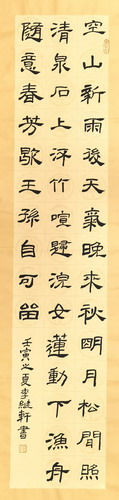 空山新雨後天氣晚來秋明月松間照
清泉石上流竹喧歸浣女蓮動下漁舟
隨意春芳歇王孫自可留
壬寅之夏李継軒書